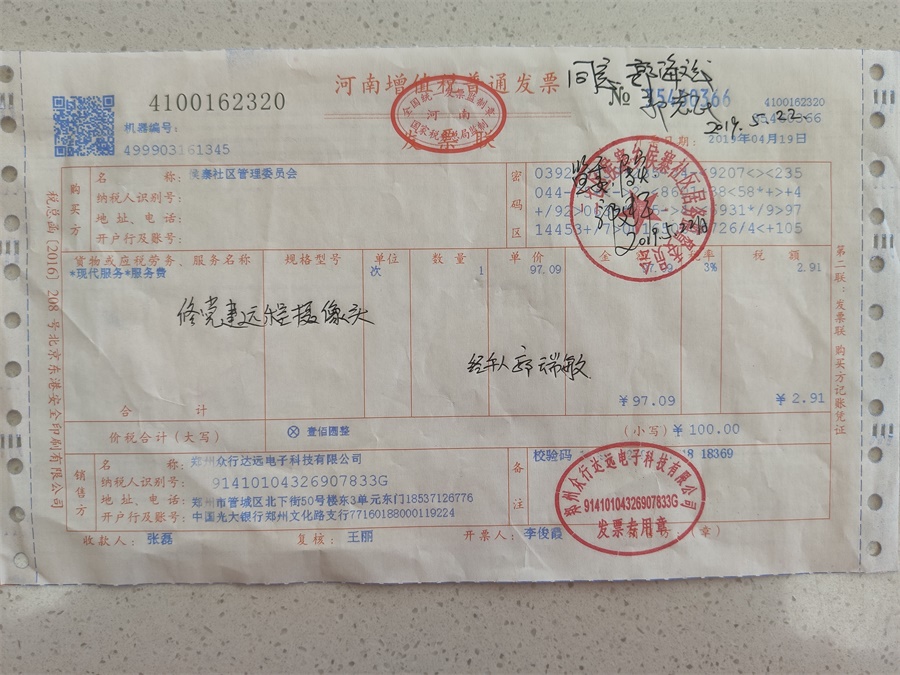 河南增值税普通发票
4100162320
机器编号:
499903161345
全国统一发票监制章
河南
国家税务局监制
发票联
同意
№
4100162320
2019.5.22
日期: 2019年04月19日
购买方
名 称: 寨社区管理委员会
纳税人识别号:
地 址、电 话:
开户行及账号:
密码区
14453+/7
726/4<+105
2019.5.22日
货物或应税劳务、服务名称 规格型号 单位 数 量 单 价 金 税率 税 额
*现代服务*服务费 次 1 97.09 3% 2.91
修党建远程摄像头
经手人 郭瑞敏
合 计 ¥97.09 ¥2.91
价税合计(大写) ⊗ 壹佰圆整 (小写) ¥100.00
销售方
名 称: 郑州众行达远电子科技有限公司
纳税人识别号: 91410104326907833G
地 址、电 话: 郑州市管城区北下街50号楼东3单元东门18537126776
开户行及账号: 中国光大银行郑州文化路支行77160188000119224
备注
校验码 18369
郑州众行达远电子科技有限公司
91410104326907833G
发票专用章
收款人: 张磊 复核: 王丽 开票人: 李俊霞 (章)
税总函〔2016〕208号北京东港安全印刷有限公司
第二联:发票联 购买方记账凭证